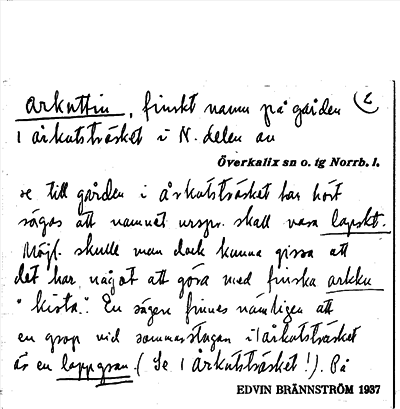 arkuttin, finskt namn på gården (2
1 arkutsträsket i N. delen av
Överkalix sn o. tg Norrb. l.
se till gården i arkutsträsket har hört
sägas att namnet urspr. skall vara lapskt.
Möjl. skulle man dock kunna gissa att
det har något att göra med finska arkku
"kista". En sägen finnes nämligen att
en grop vid sommarstugan i 1 arkutsträsket
är en lappgrav. (Se 1 arkutsträsket!). På
EDVIN BRÄNNSTRÖM 1937